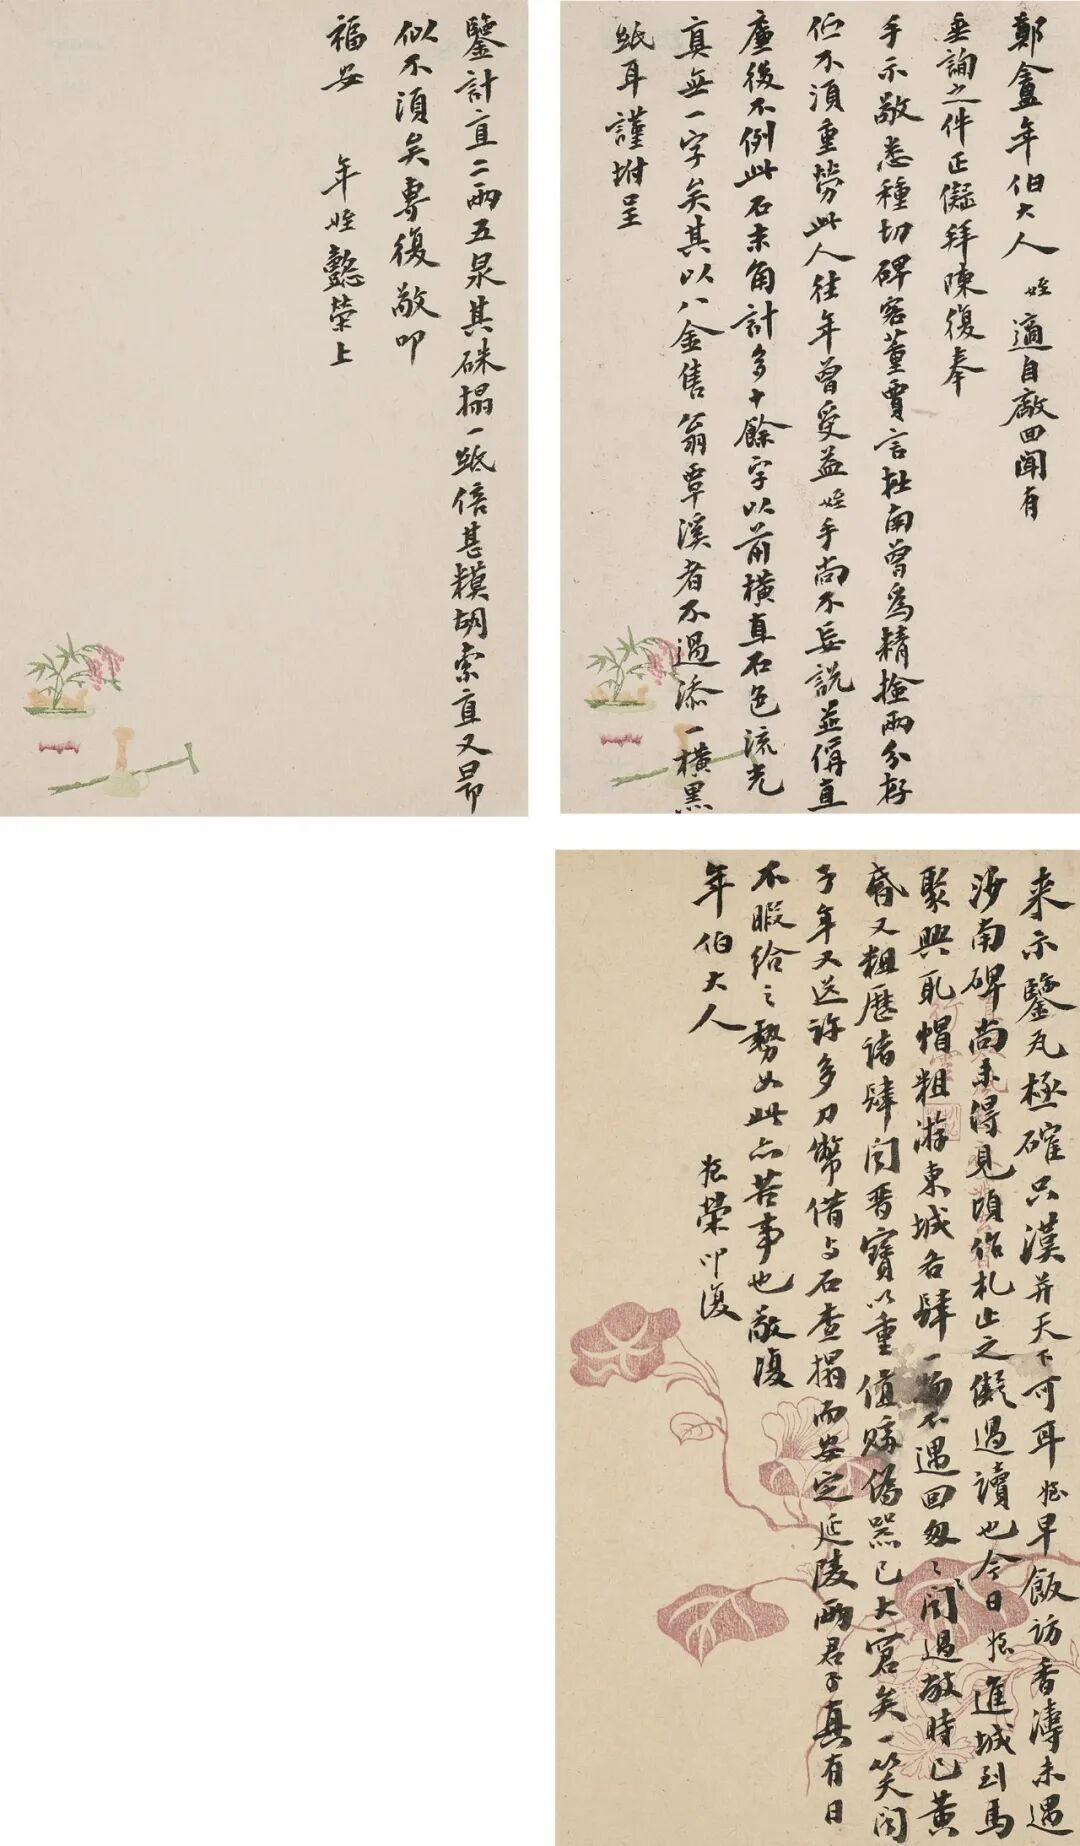 鄭盦年伯大人 姪適自廠回聞有
垂詢之件正儗拜陳復奉
手示敬悉種切碑客董賈言北南曾為精撿兩分好
但不須重勞此人往年曾受益姪手尚不妄說並偁直
廉後不例此石末角計多十餘字以前橫直石色流光
真無一字矣其以八金售翁覃溪者不過添一橫黑
紙耳謹坿呈
鑒計直二兩五泉其硃搨一紙倍甚糢胡索直又昂
似不須矣專復敬叩
福安 年姪懿榮上
來示鑒瓦極確只漢并天下可耳 姪早飯訪香濤未遇
汝南碑尚未得見頃作札止之儗過讀也今日姪進城到馬
聚興取帽粗游東城各肆一物不遇回匆匆間過敝時已黃
昏又粗歷諸肆聞晋寶以重值賒偽器已大窘矣一笑聞
子年又送許多刀幣借与石查搨而安定延陵兩君子真有日
不暇給之勢如此亦苦事也敬復
年伯大人 姪榮叩復